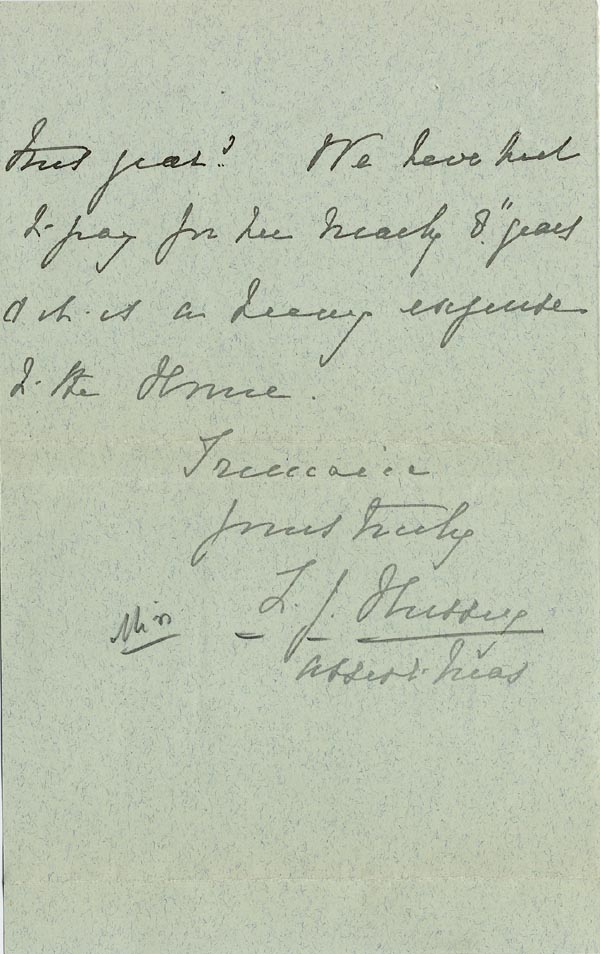 this year? We have had
to pay for her nearly 8" years
& it is a heavy expense
to the Home.
I remain
yours truly
Miss L. J. Hussey
Assist. Treas